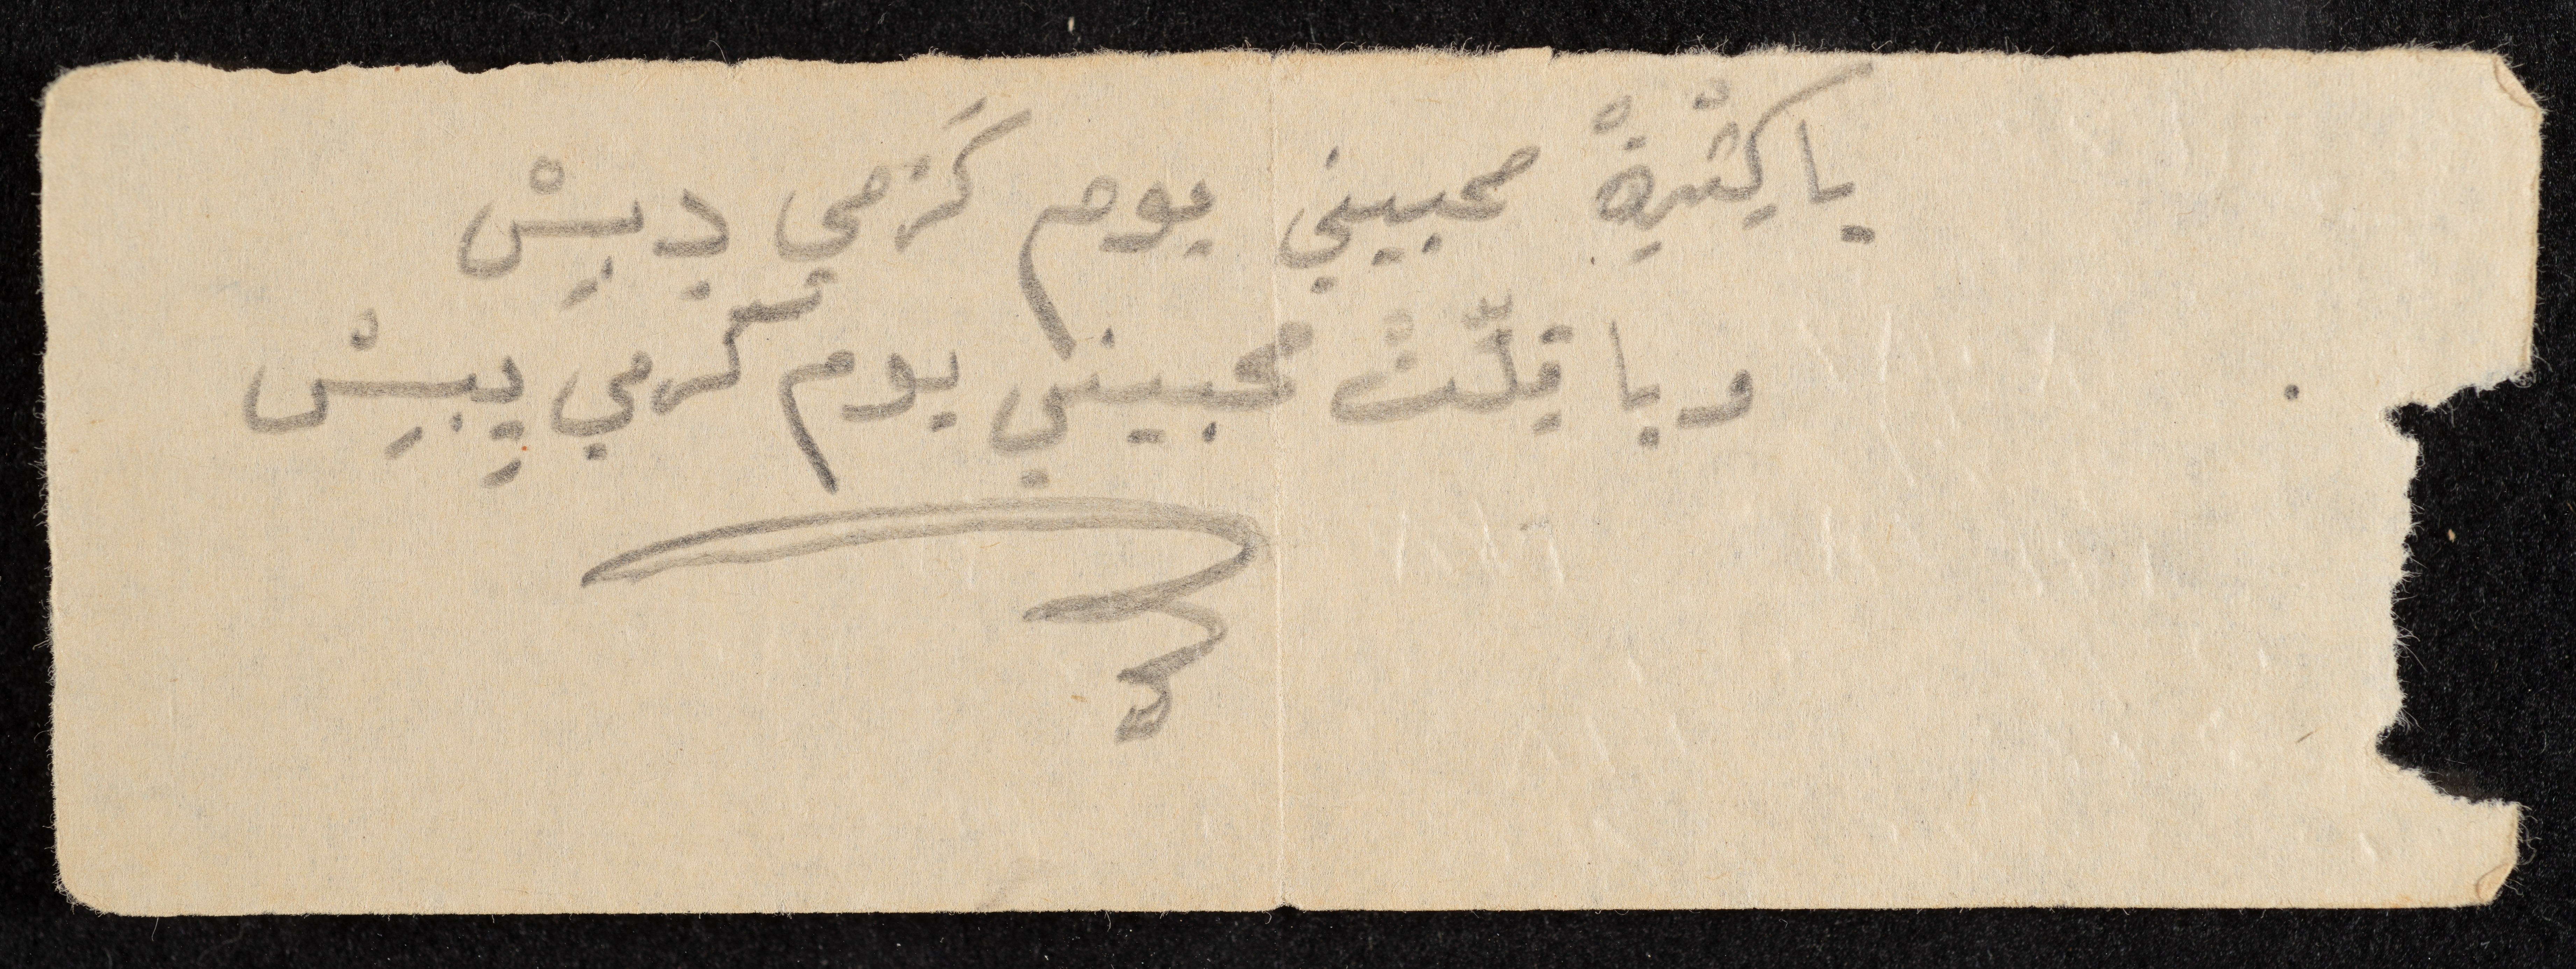 يا كِثْرِةْ محبيني يوم كَرْمي دِبِيسْ
ويا قِلّتْ محبيني يوم كَرْمي يِبيِسْ